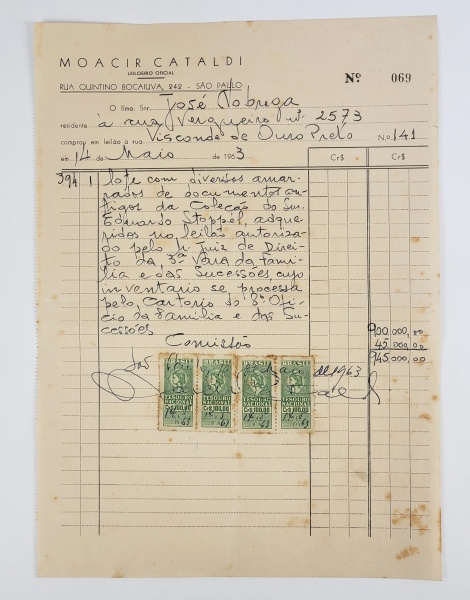 MOACIR CATALDI
LEILOEIRO OFICIAL
RUA QUINTINO BOCAIUVA, 242 - SÃO PAULO
Nº 069
O Ilmo. Snr. José Nobrega
residente à rua Vergueiro nº 2573
comprou em leilão à rua Visconde de Ouro Preto No. 141
em 14 de Maio de 1963
Cr$ Cr$
394 1 lote com diversos amar-
rados de documentos an-
tigos da Coleção do Snr.
Eduardo Stoppel, adque-
ridos no leilão autoriza-
do pelo Dr. Juiz de Direi-
to da 3ª Vara da Famí-
lia e das Sucessões, cujo
inventario se processa
pelo Cartorio do 8º Ofi-
cio da Familia e das Su-
cessões 900.000,00
Comissão 45.000,00
945.000,00
São Paulo, 14 de Maio de 1963
BRASIL BRASIL BRASIL BRASIL
TESOURO NACIONAL TESOURO NACIONAL TESOURO NACIONAL TESOURO NACIONAL
Cr$ 100,00 Cr$ 100,00 Cr$ 100,00 Cr$ 100,00